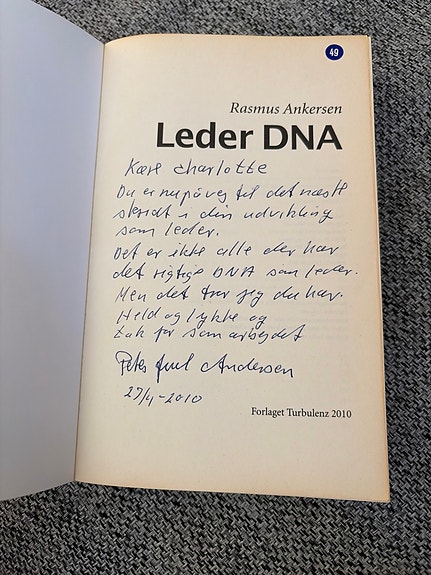 49
Rasmus Ankersen
Leder DNA
Kære Charlotte
Du er nu på vej til det næste
skridt i din udvikling
som leder.
Det er ikke alle der har
det rigtige DNA som leder.
Men det tror jeg du har.
Held og lykke og
tak for samarbejdet
Peter Juul Andersen
27/4-2010
Forlaget Turbulenz 2010